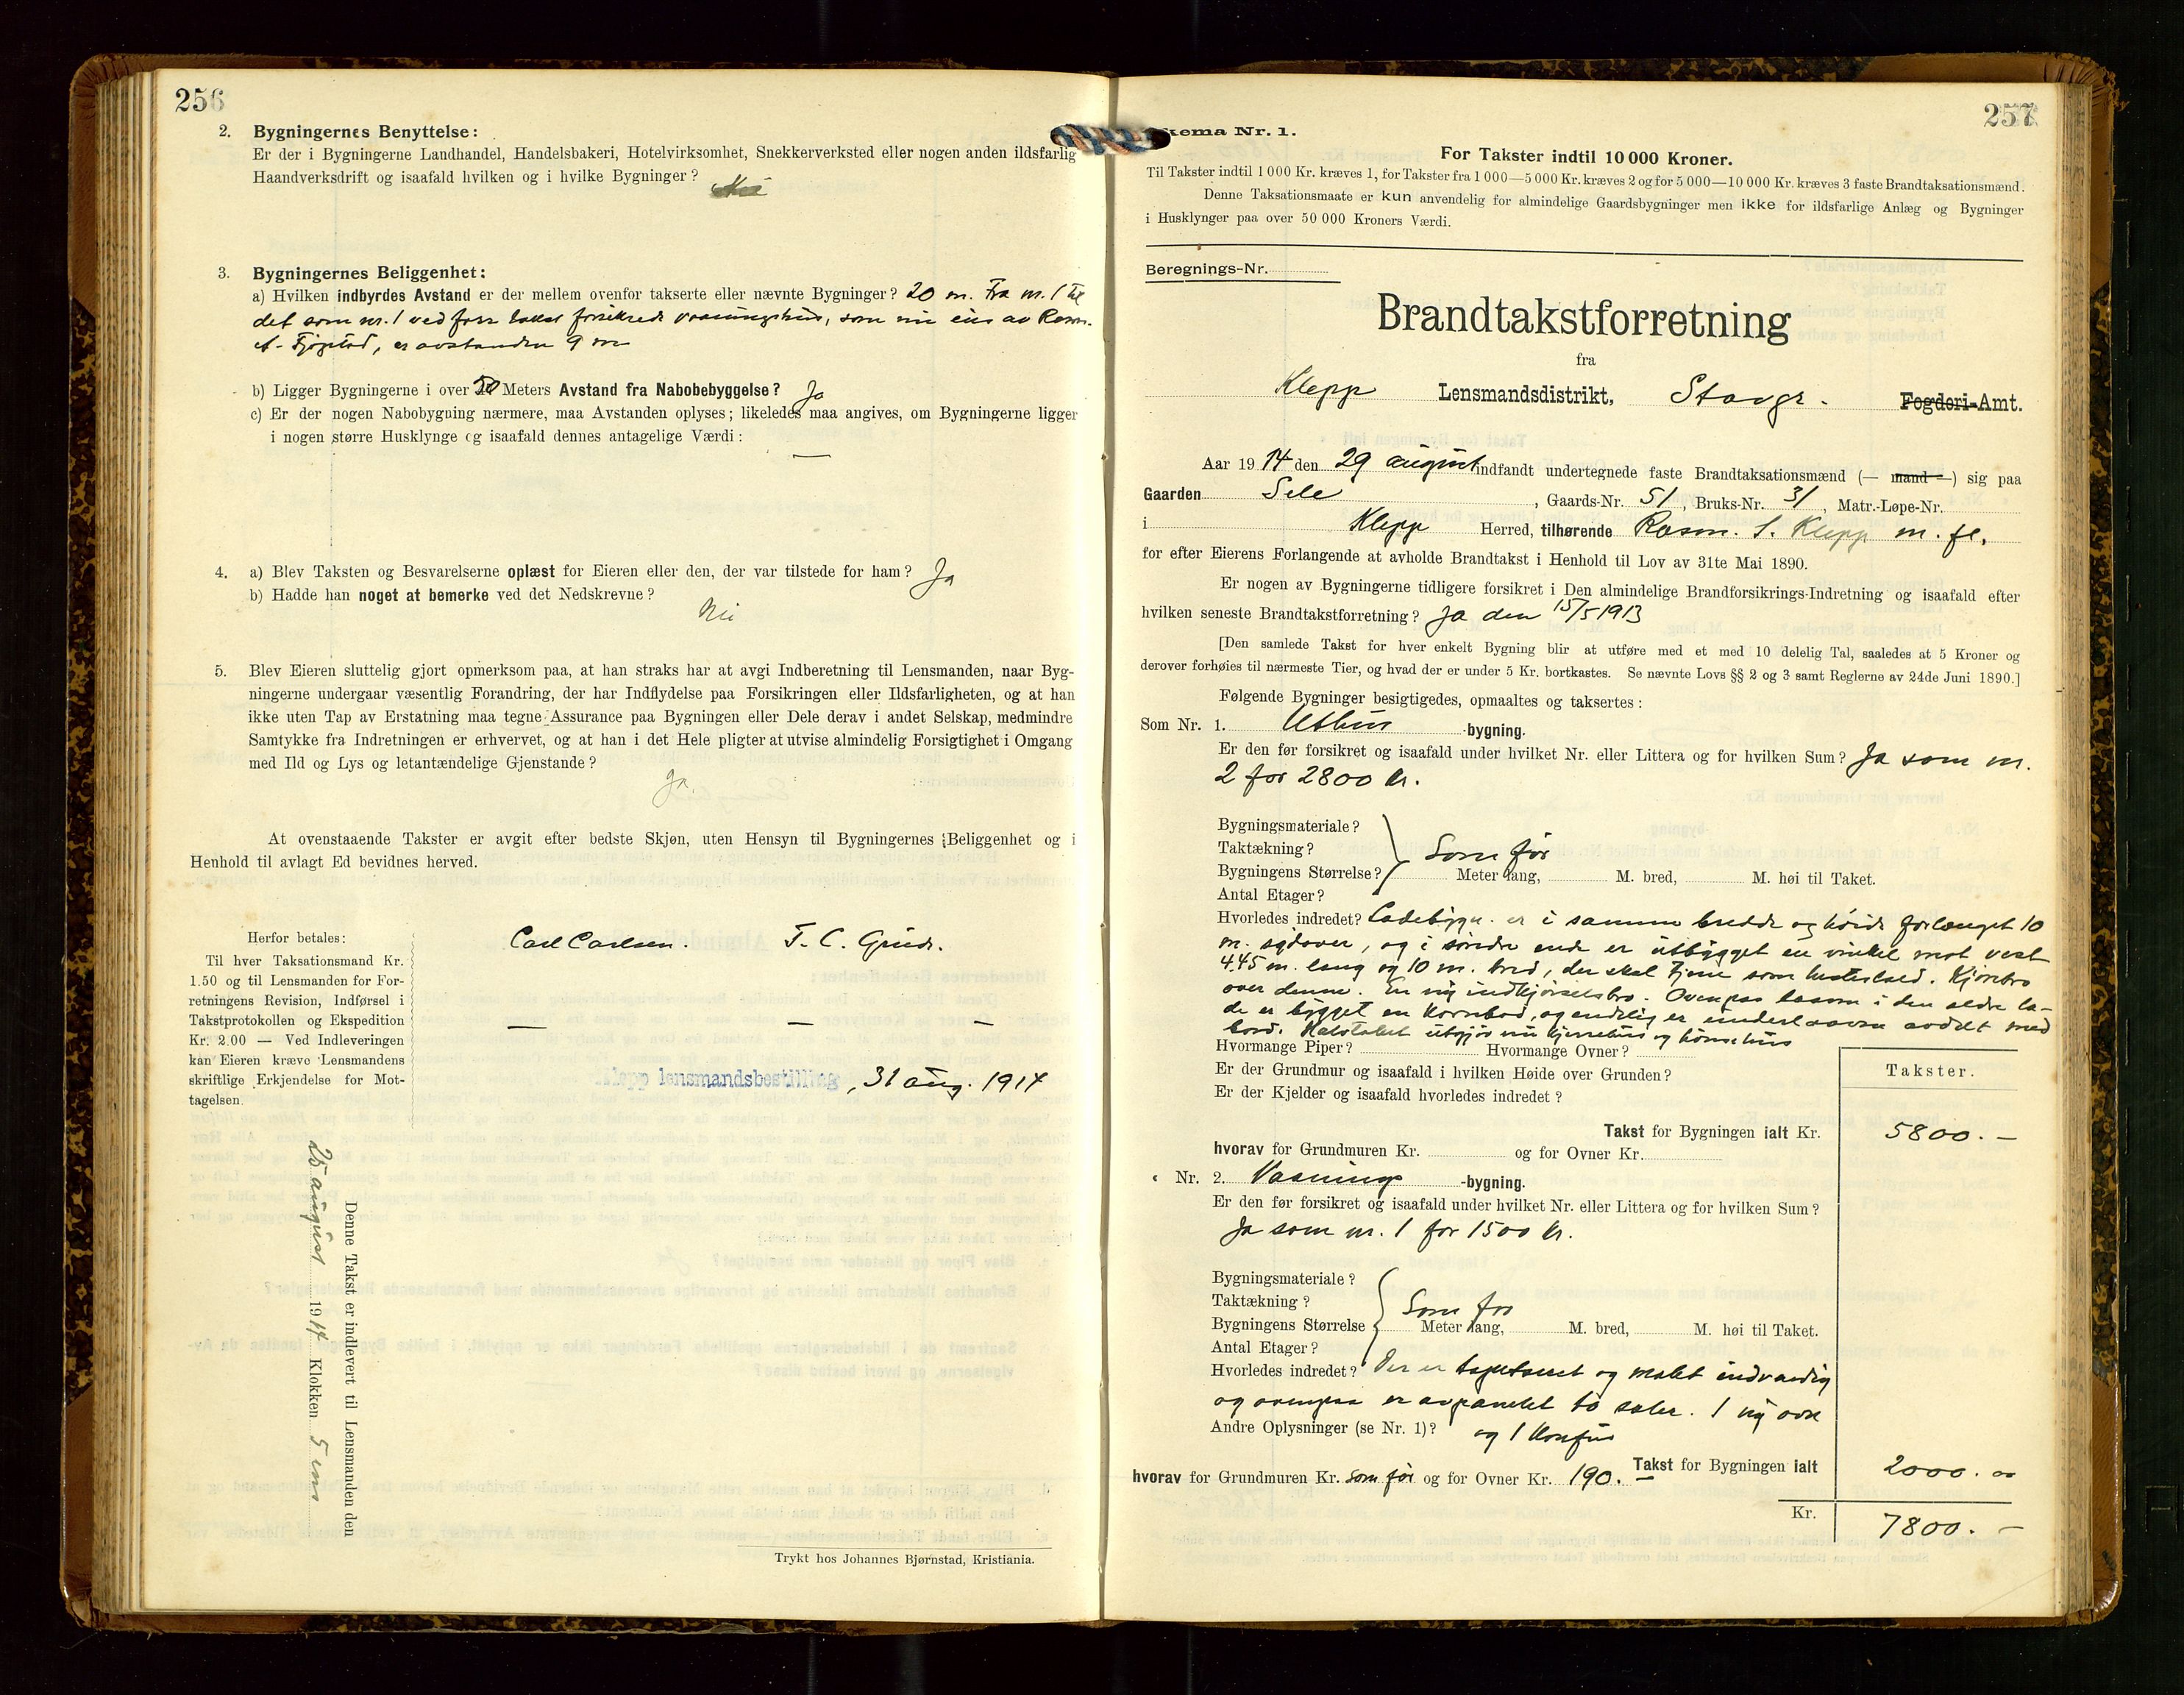 256
2. Bygningernes Benyttelse:
Er der i Bygningerne Landhandel, Handelsbakeri, Hotelvirksomhet, Snekkerverksted eller nogen anden ildsfarlig
Haandverksdrift og isaafald hvilken og i hvilke Bygninger? Nei
3. Bygningernes Beliggenhet:
a) Hvilken indbyrdes Avstand er der mellem ovenfor takserte eller nævnte Bygninger? 20 m. Fra nr. 1 til
det som nr. 1 ved forr takst forsikrede vaaningshus, som nu eies av Rasm.
A. Fjogstad, er avstanden 9 m
b) Ligger Bygningerne i over 50 Meters Avstand fra Nabobebyggelse? Ja
c) Er der nogen Nabobygning nærmere, maa Avstanden oplyses; likeledes maa angives, om Bygningerne ligger
i nogen større Husklynge og isaafald dennes antagelige Værdi: —
4. a) Blev Taksten og Besvarelserne oplæst for Eieren eller den, der var tilstede for ham? Ja
b) Hadde han noget at bemerke ved det Nedskrevne?
Nei
5. Blev Eieren sluttelig gjort opmerksom paa, at han straks har at avgi Indberetning til Lensmanden, naar Byg-
ningerne undergaar væsentlig Forandring, der har Indflydelse paa Forsikringen eller Ildsfarligheten, og at han
ikke uten Tap av Erstatning maa tegne Assurance paa Bygningen eller Dele derav i andet Selskap, medmindre
Samtykke fra Indretningen er erhvervet, og at han i det Hele pligter at utvise almindelig Forsigtighet i Omgang
med Ild og Lys og letantændelige Gjenstande?
Ja
At ovenstaaende Takster er avgit efter bedste Skjøn, uten Hensyn til Bygningernes Beliggenhet og i
Henhold til avlagt Ed bevidnes herved.
Carl Carlsen. T. C. Grude.
Herfor betales:
Til hver Taksationsmand Kr.
1.50 og til Lensmanden for For-
retningens Revision, Indførsel i
Takstprotokollen og Ekspedition
Kr. 2.00 — Ved Indleveringen
kan Eieren kræve Lensmandens
skriftlige Erkjendelse for Mot-
tagelsen.
— — —
Klepp lensmandsbestilling, 31 aug. 1914
Denne Takst er indlevert til Lensmanden den
25 august 1914 Klokken 5 em
Trykt hos Johannes Bjørnstad, Kristiania.
257
Skema Nr. 1.
For Takster indtil 10 000 Kroner.
Til Takster indtil 1 000 Kr. kræves 1, for Takster fra 1 000—5 000 Kr. kræves 2 og for 5 000—10 000 Kr. kræves 3 faste Brandtaksationsmænd.
Denne Taksationsmaate er kun anvendelig for almindelige Gaardsbygninger men ikke for ildsfarlige Anlæg og Bygninger
i Husklynger paa over 50 000 Kroners Værdi.
Beregnings-Nr.
Brandtakstforretning
fra
Klepp Lensmandsdistrikt, Stavgr. Fogderi-Amt.
Aar 1914 den 29 august indfandt undertegnede faste Brandtaksationsmænd (— mand —) sig paa
Gaarden Sele, Gaards-Nr. 51, Bruks-Nr. 31, Matr.-Løpe-Nr.
i Klepp Herred, tilhørende Rasm. S. Klepp m. fl.
for efter Eierens Forlangende at avholde Brandtakst i Henhold til Lov av 31te Mai 1890.
Er nogen av Bygningerne tidligere forsikret i Den almindelige Brandforsikrings-Indretning og isaafald efter
hvilken seneste Brandtakstforretning? Ja den 15/5 1913
[Den samlede Takst for hver enkelt Bygning blir at utføre med et med 10 delelig Tal, saaledes at 5 Kroner og
derover forhøies til nærmeste Tier, og hvad der er under 5 Kr. bortkastes. Se nævnte Lovs §§ 2 og 3 samt Reglerne av 24de Juni 1890.]
Følgende Bygninger besigtigedes, opmaaltes og taksertes:
Som Nr. 1. Uthus -bygning.
Er den før forsikret og isaafald under hvilket Nr. eller Littera og for hvilken Sum? Ja som nr.
2 for 2800 kr.
Bygningsmateriale?
Taktækning? Som før
Bygningens Størrelse? Meter lang, M. bred, M. høi til Taket.
Antal Etager?
Hvorledes indredet? Ladebygn. er i samme bredde og høide forlænget 10
m. sydover, og i søndre ende er utbygget en vinkel mot vest
4.45 m. lang og 10 m. bred, der skal tjene som hestestald. Kjørebro
over denne. En ny indkjørselsbro. Ovenpaa laaven i den ældre la-
de er bygget en kornbod, og endelig er underlaaven avdelt med
bord. Halvtaket utgjør nu kjerrehus og hønsehus
Hvormange Piper? Hvormange Ovner?
Er der Grundmur og isaafald i hvilken Høide over Grunden?
Er der Kjelder og isaafald hvorledes indredet?
Takster.
Takst for Bygningen ialt Kr. 5800. —
hvorav for Grundmuren Kr. og for Ovner Kr.
Nr. 2. Vaanings -bygning.
Er den før forsikret og isaafald under hvilket Nr. eller Littera og for hvilken Sum?
Ja som nr. 1 for 1500 kr.
Bygningsmateriale?
Taktækning? Som før
Bygningens Størrelse Meter lang, M. bred, M. høi til Taket.
Antal Etager?
Hvorledes indredet? Der er tapetseret og malet indvendig
og ovenpaa er avpanelet to saler. 1 ny ovn
Andre Oplysninger (se Nr. 1)? og 1 komfur
Takst for Bygningen ialt 2000. 00
hvorav for Grundmuren Kr. som før og for Ovner Kr. 190. —
Kr. 7800. —